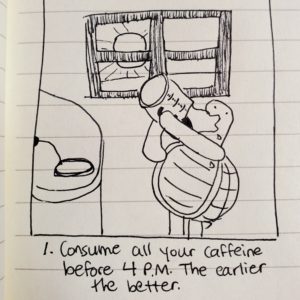 1. Consume all your caffeine
before 4 P.M. The earlier
the better.